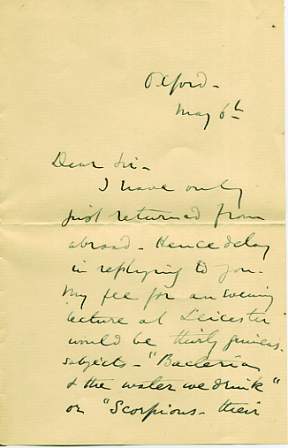 Oxford -
May 6th
Dear Sir -
I have only
just returned from
abroad - Hence delay
in replying to you.
My fee for an evening
lecture at Leicester
would be thirty guineas.
subjects - "Bacteria
& the water we drink"
or "Scorpions - their